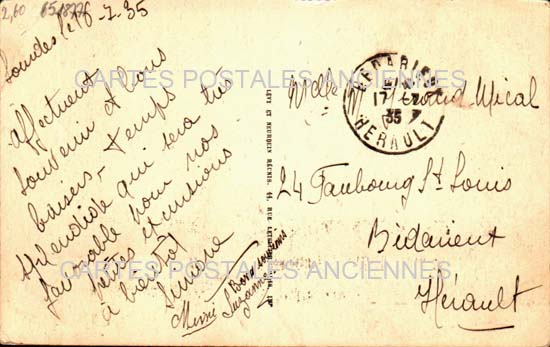 2,60
Lourdes le 16-7-35
affectueux
souvenir et bons
baisers - temps
splendide qui sera très
favorable pour nos
petites excursions
à bientôt
Simone
Bons souvenirs
Suzanne
LEVY ET NEURDEIN RÉUNIS, 44, RUE
BEDARIEUX
17
35
HERAULT
Melle
Mical
24 Faubourg St Louis
Bédarieux
Hérault
CARTES POSTALES ANCIENNES
CARTES POSTALES ANCIENNES